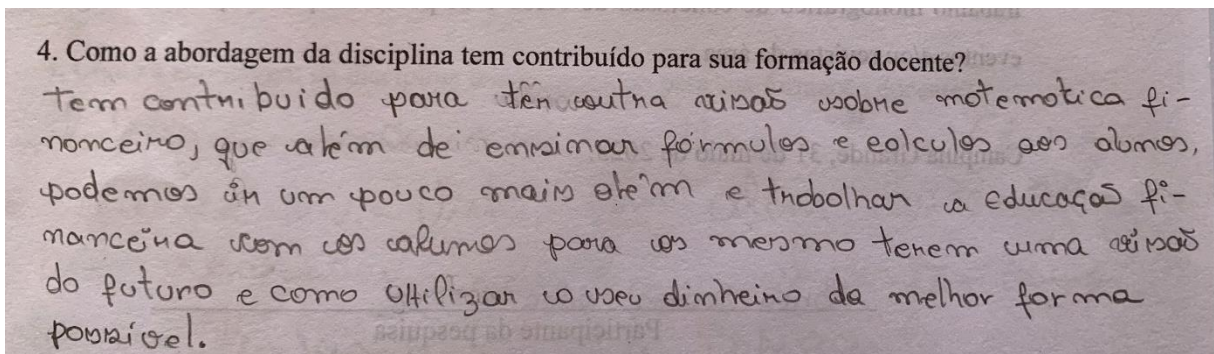 4. Como a abordagem da disciplina tem contribuído para sua formação docente?
Tem contribuido para ter outra visão sobre matematica fi-
nanceira, que além de ensinar fórmulas e calculos aos alunos,
podemos ir um pouco mais além e trabalhar a educação fi-
nanceira com os alunos para os mesmo terem uma visão
do futuro e como utilizar o seu dinheiro da melhor forma
possível.
Participante da pesquisa